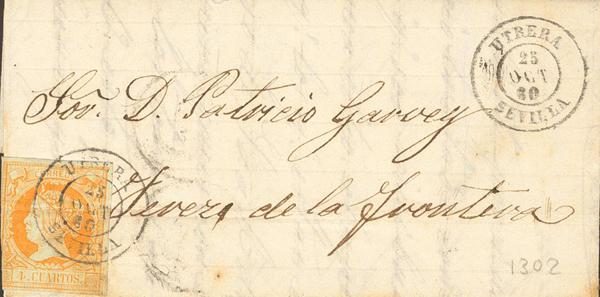 UTRERA
25
OCT
60
SEVILLA
Sor. D. Patricio Garvey
Jerez de la Frontera
UTRERA
25
OCT
60
4 CUARTOS.
1302